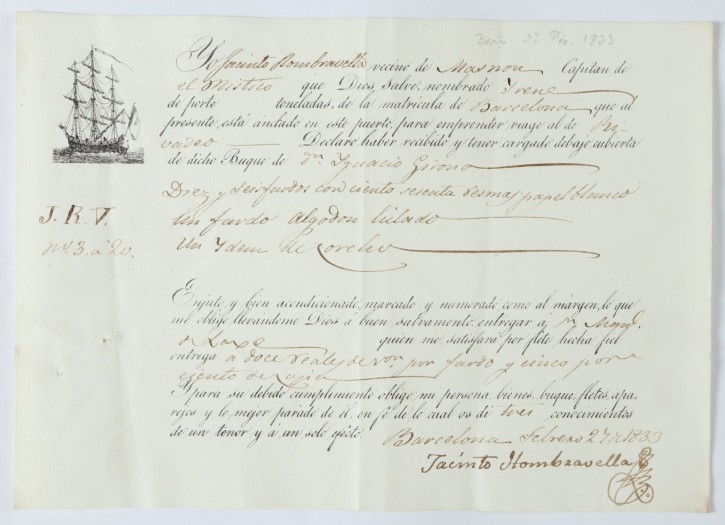 Barna. 27 Feb. 1833
Yo Jacinto Hombravella vecino de Masnou Capitan de
el Mistico que Dios salve, nombrado Irene
de porte toneladas, de la matrícula de Barcelona que al
presente está anclado en este puerto, para emprender viage al de Riv-
vadeo Declaro haber recibido y tener cargado debajo cubierta
de dicho Buque de Dn. Ignacio Girona
Diez y seis fardos con ciento sesenta resmas papel blanco
un fardo algodon hilado
un Ydem de Corcho
J. R. V.
nº. 3. á 20.
Enjuto y bien acondicionado, marcado y numerado como al margen, lo que
me obligo llevándome Dios á buen salvamento, entregar á
de Laxe quien me satisfará por flete, hecha fiel
entrega a doce reales de von. por fardo y cinco por
ciento de capa
Y para su debido cumplimiento obligo mi persona, bienes, buque, fletes, apa-
rejos y lo mejor parado de él, en fé de lo cual os dí tres conocimientos
de un tenor y á un solo efecto.
Barcelona Febrero 27 de 1833
Jacinto Hombravella